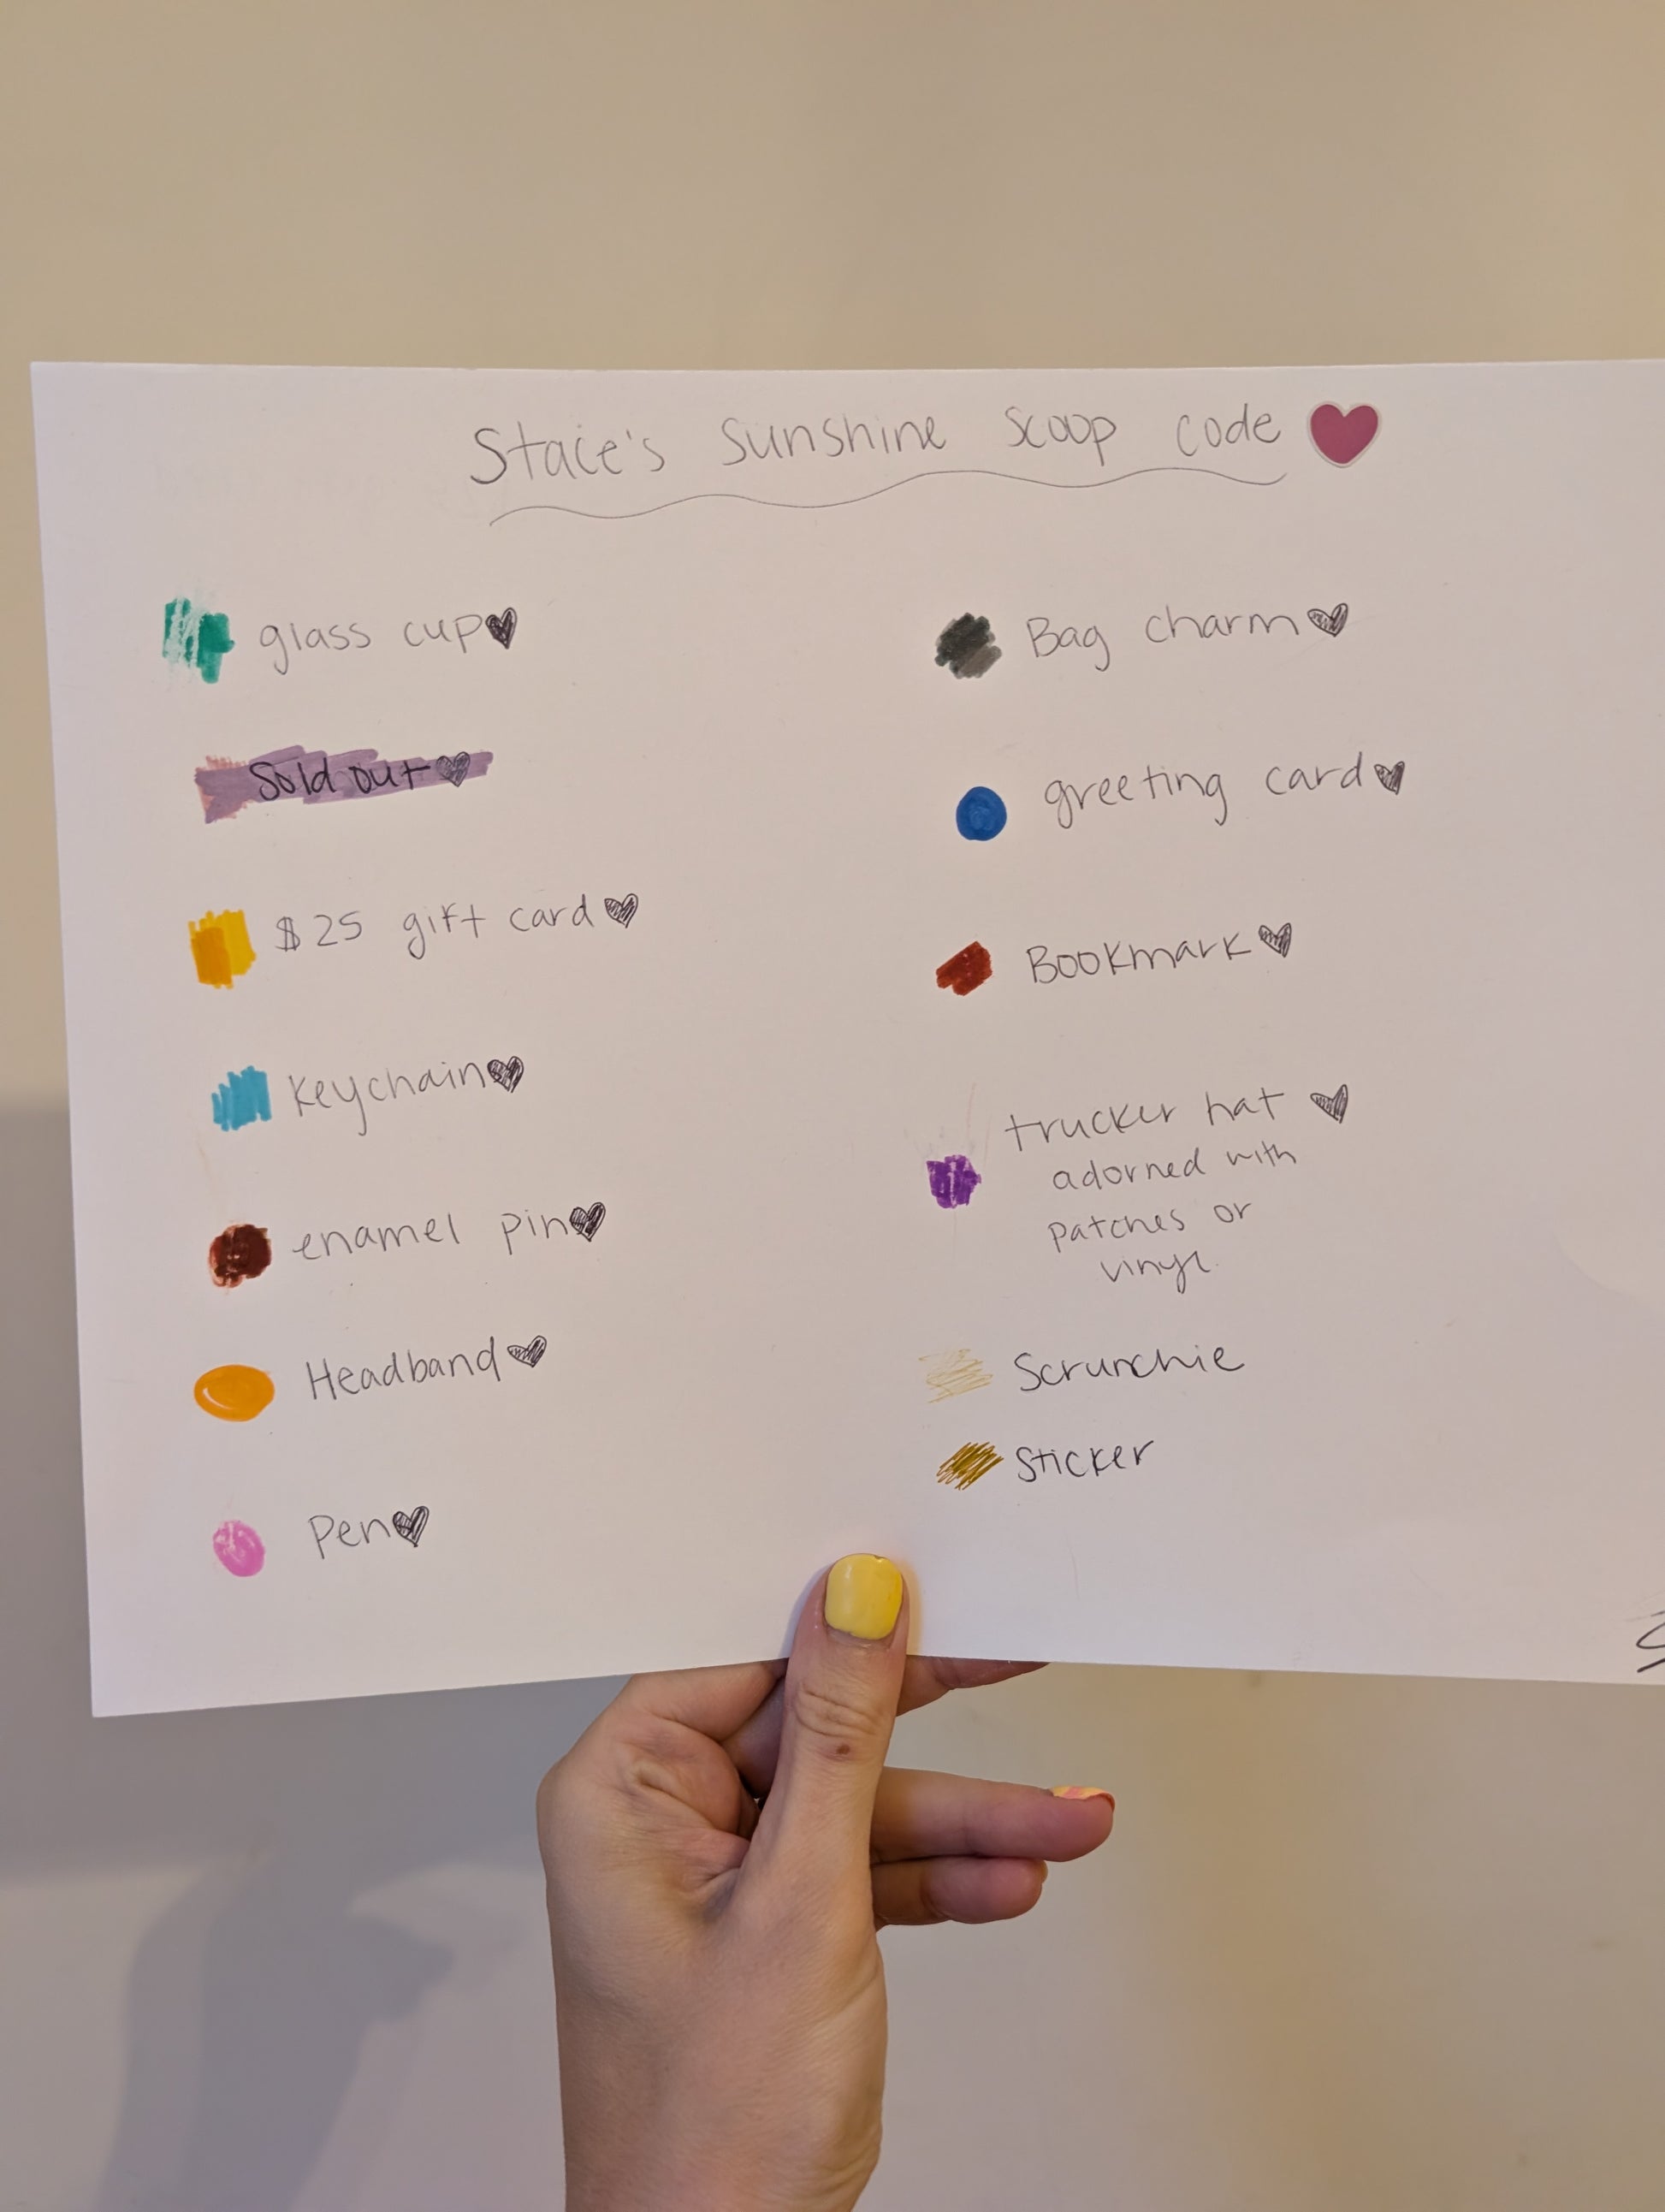 Stacie's sunshine scoop code
glass cup
Sold out
$25 gift card
Keychain
enamel pin
Headband
Pen
Bag charm
greeting card
Bookmark
trucker hat
adorned with
patches or
vinyl.
Scrunchie
Sticker